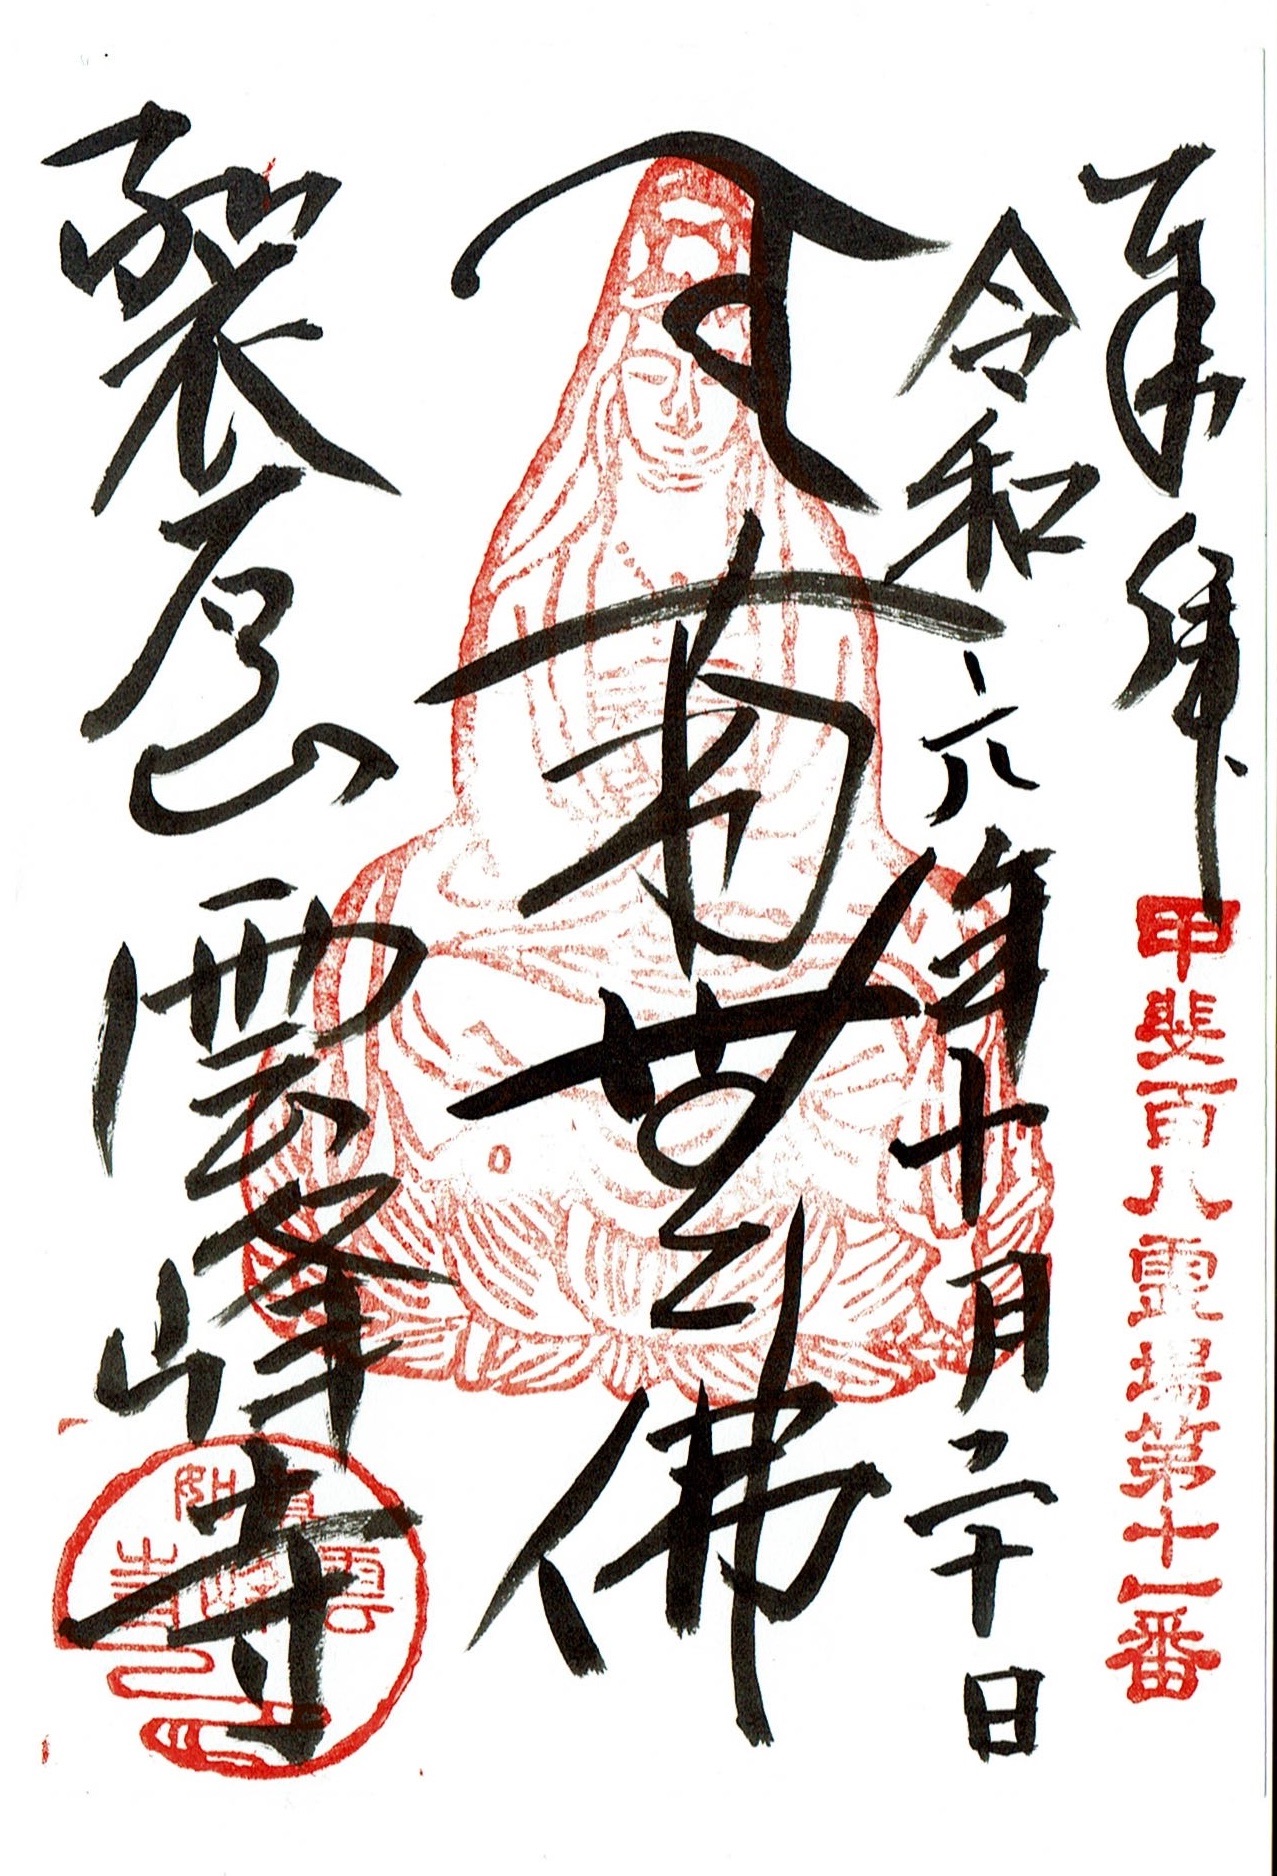 奉拝
甲斐百八霊場第十一番
令和六年十月二十日
南無佛
裂石山
雲峰寺